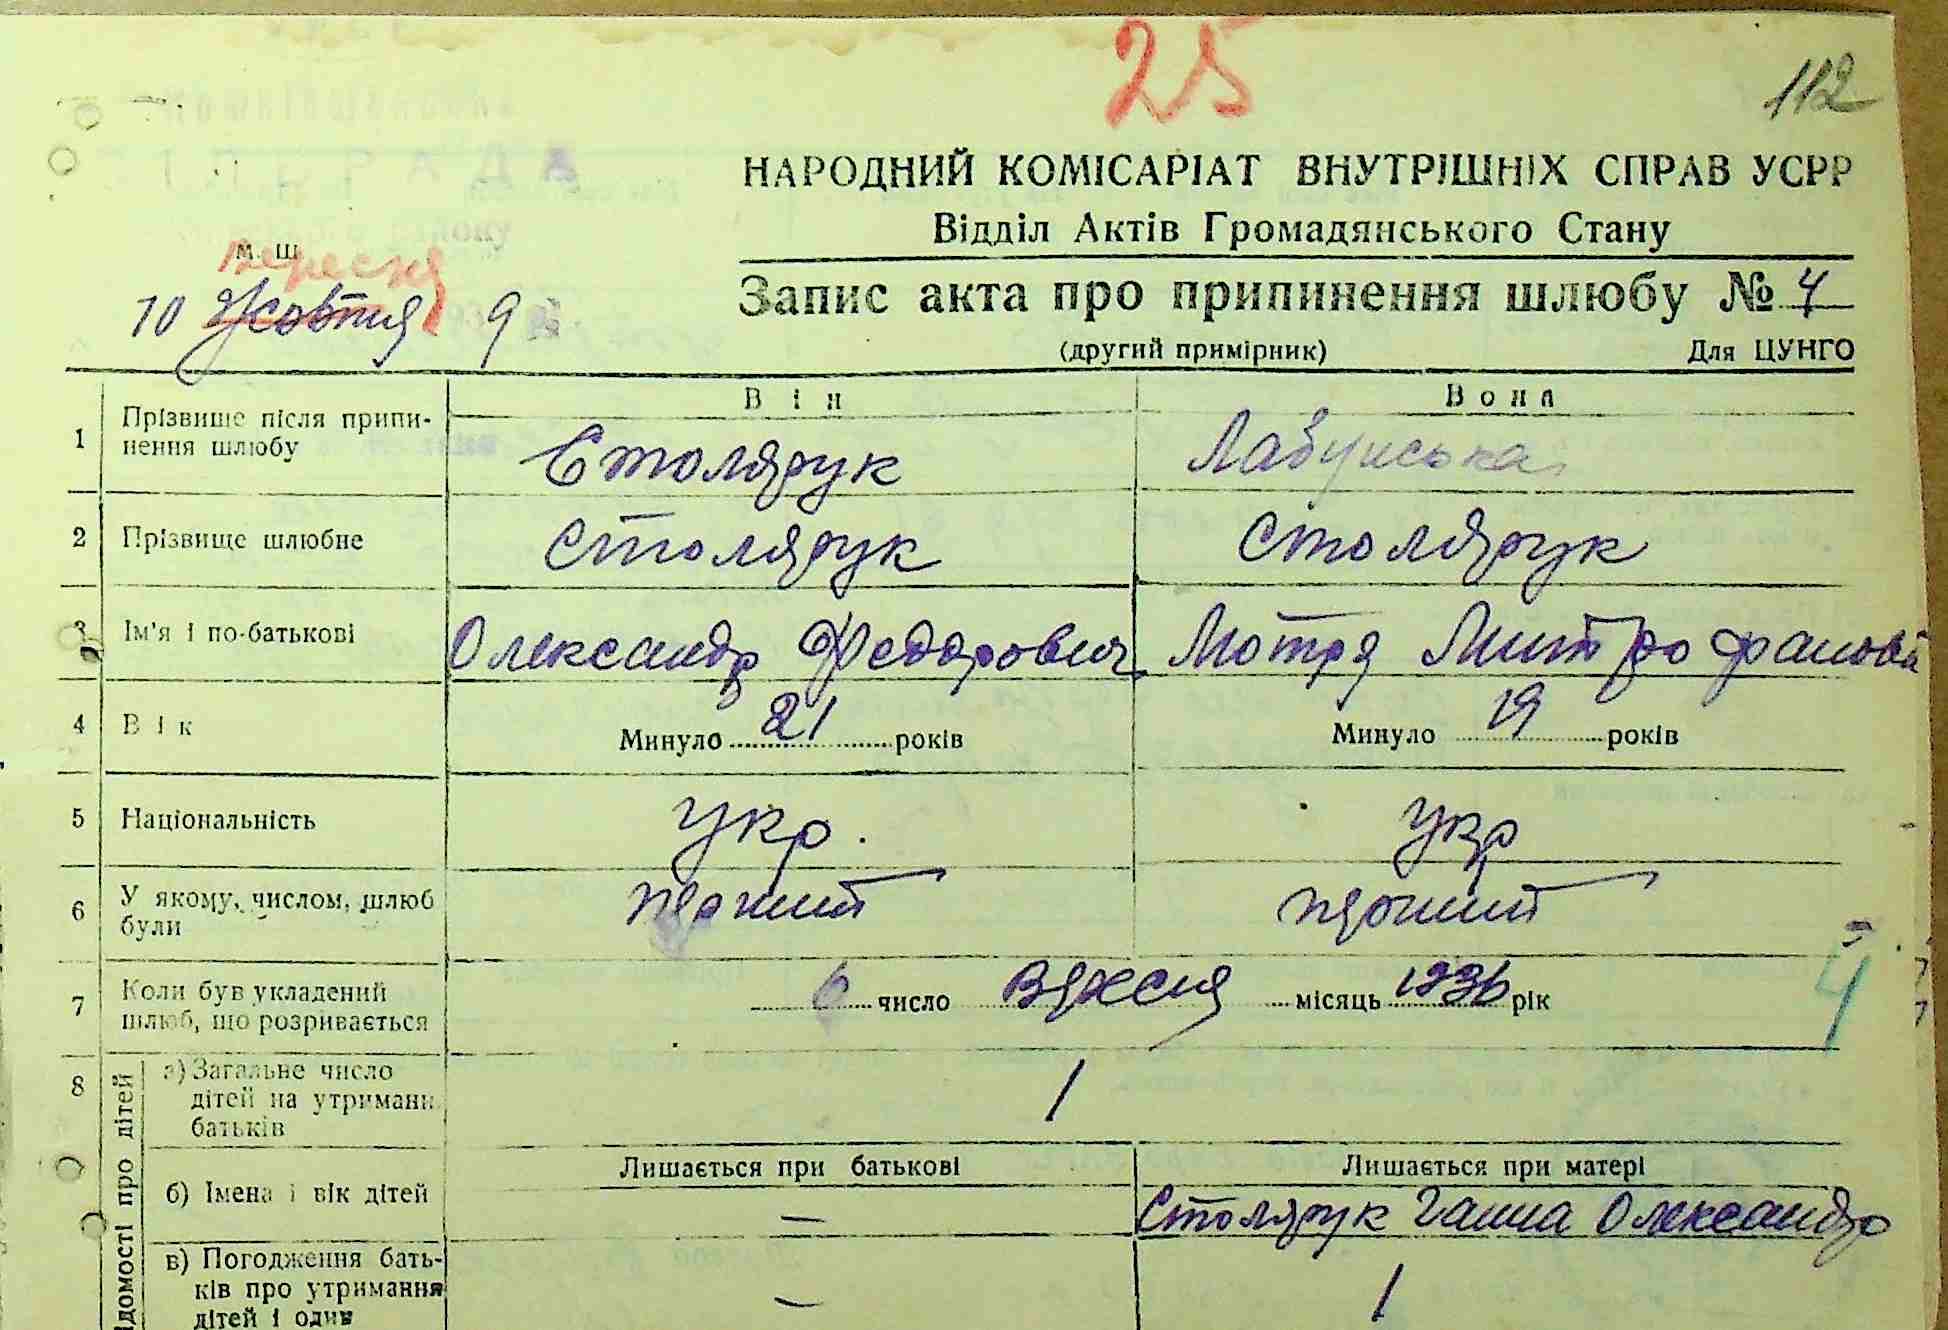 25
112
НАРОДНИЙ КОМІСАРІАТ ВНУТРІШНІХ СПРАВ УСРР
Відділ Актів Громадянського Стану
м. ш.
вересня
10 Жовтня 9
Запис акта про припинення шлюбу № 4
(другий примірник) Для ЦУНГО
Він Вона
1 Прізвище після припинення шлюбу Столярук Лабунська
2 Прізвище шлюбне Столярук Столярук
3 Ім'я і по-батькові Олександр Федарович Мотря Митрофанова
4 Вік Минуло 21 років Минуло 19 років
5 Національність Укр. Укр
6 У якому, числом, шлюб були перший перший
7 Коли був укладений шлюб, що розривається 6 число Вересня місяць 1936 рік
4
8 а) Загальне число дітей на утриманн. батьків 1
Лишається при батькові Лишається при матері
б) Імена і вік дітей — Столярук Ганна Олександро
в) Погодження батьків про утримання дітей і один — 1
ідомості про дітей